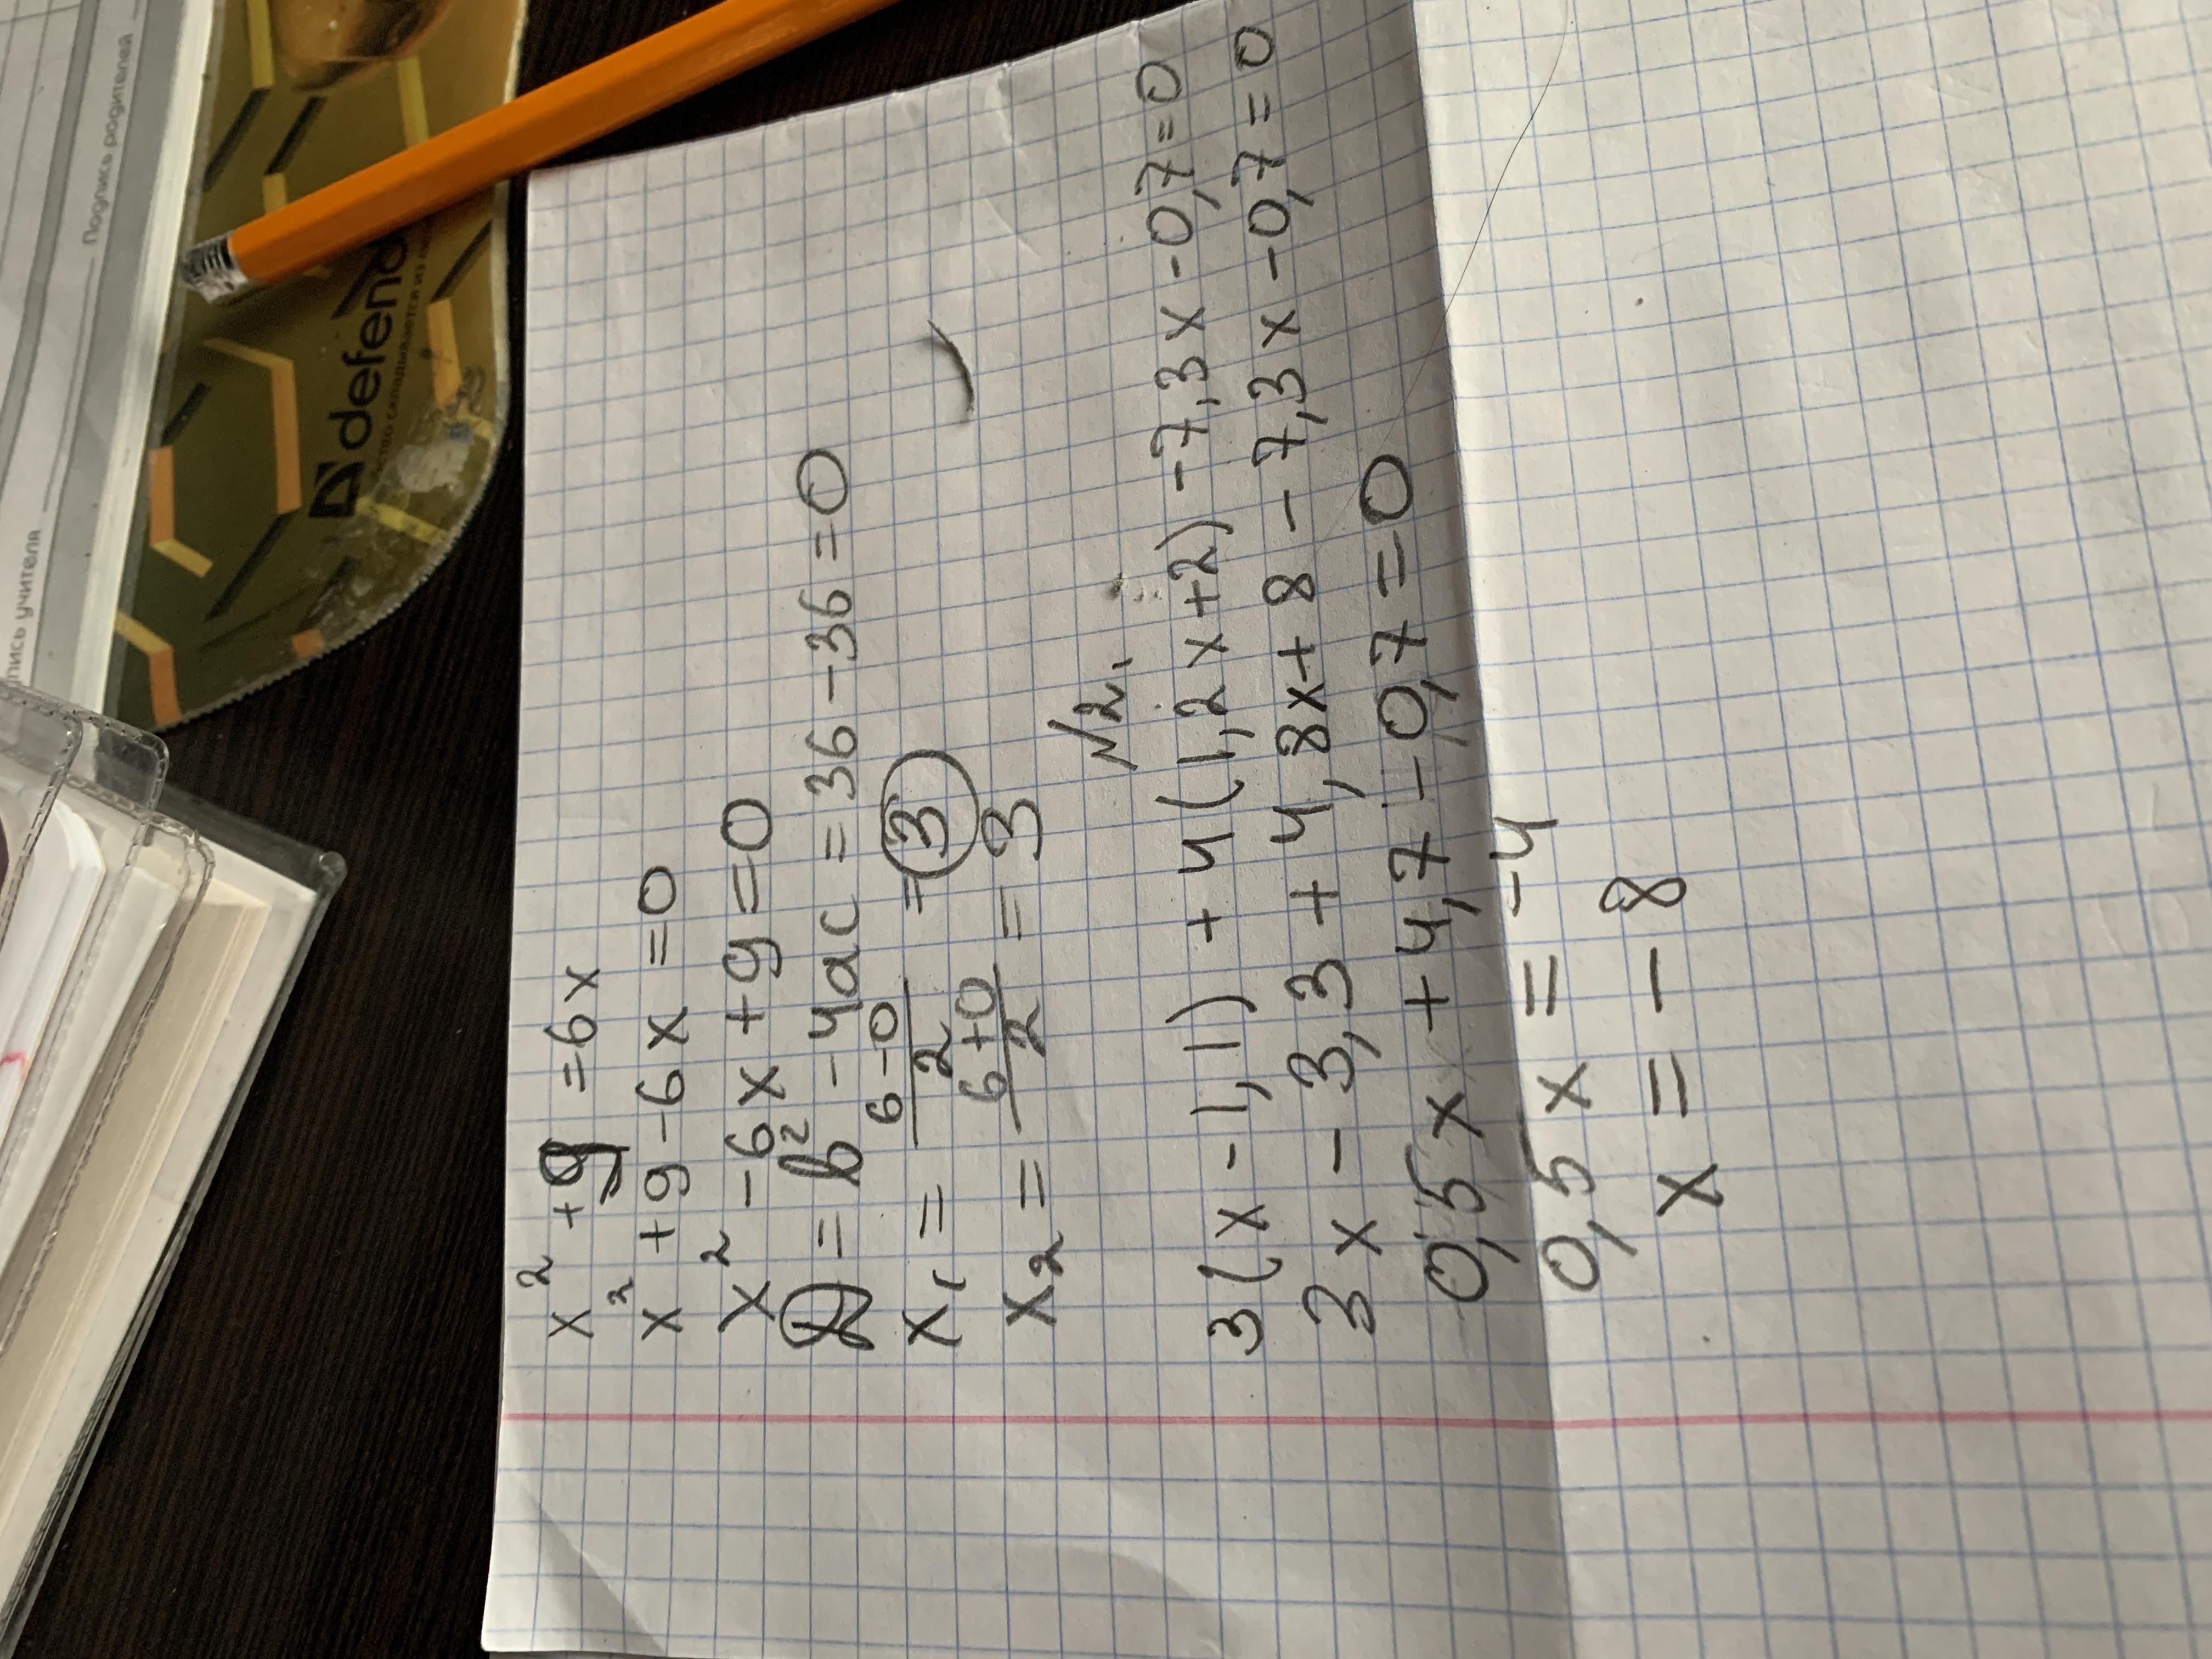 Подпись родителей
defend
x² + 9 = 6x
x² + 9 - 6x = 0
x² - 6x + 9 = 0
D = b² - 4ac = 36 - 36 = 0
x₁ = (6 - 0)/2 = 3
x₂ = (6 + 0)/2 = 3
№2.
3(x - 1,1) + 4(1,2x + 2) - 7,3x - 0,7 = 0
3x - 3,3 + 4,8x + 8 - 7,3x - 0,7 = 0
0,5x + 4,7 - 0,7 = 0
0,5x = -4
x = -8